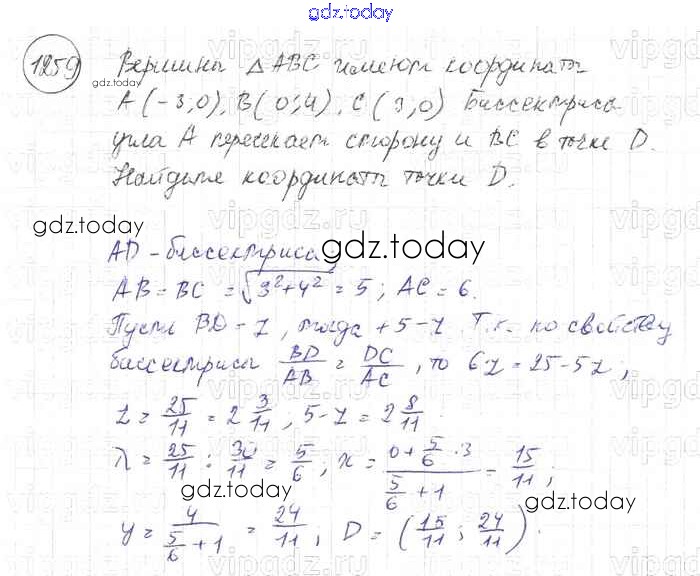 gdz.today
1259 Вершины △ABC имеют координаты
A(-3;0), B(0;4), C(3;0) Биссектриса
угла A пересекает сторону и BC в точке D.
Найдите координаты точки D.
gdz.today
AD - биссектриса;
gdz.today
AB = BC = √3²+4² = 5; AC = 6.
Пусть BD = z, тогда + 5-z Т.к. по свойству
биссектрисы BD/AB = DC/AC, то 6z = 25-5z;
z = 25/11 = 2 3/11; 5-z = 2 8/11.
λ = 25/11 : 30/11 = 5/6; x = (0 + 5/6 · 3)/(5/6 + 1) = 15/11;
gdz.today
gdz.today
y = 4/(5/6 + 1) = 24/11; D = (15/11; 24/11).